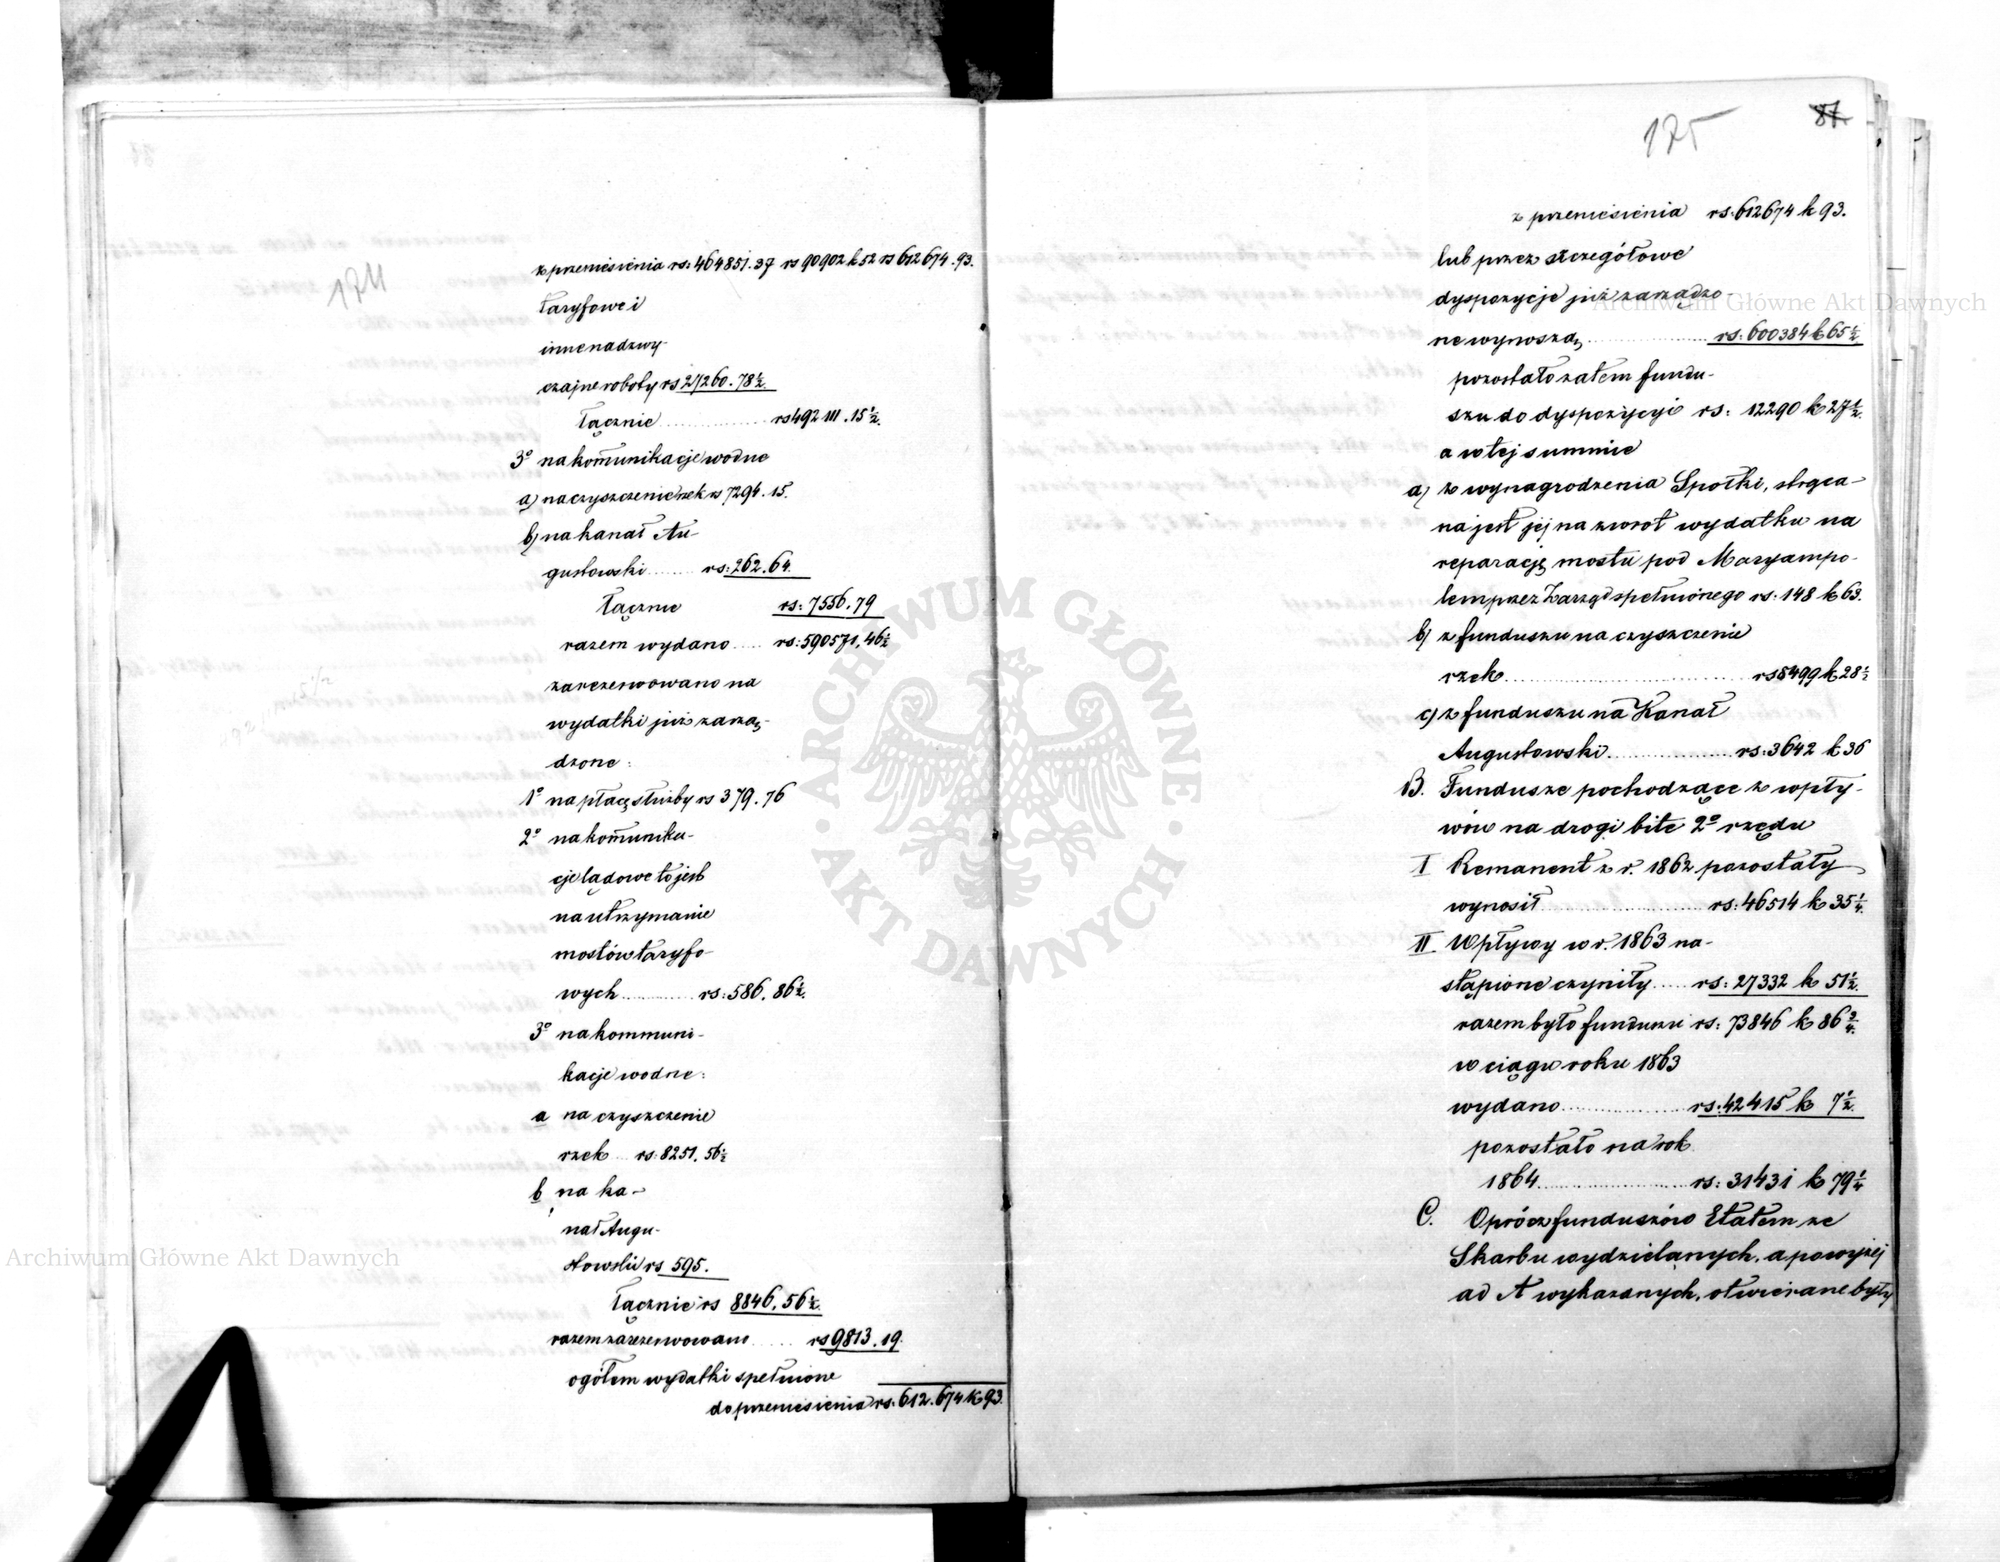 174
z przeniesienia rs: 464851.37 rs 90902 k 52 rs 612674.93.
taryfowe i
inne nadzwy-
czajne roboty rs 27260.78½.
łącznie rs 492111.15½.
3º na komunikacje wodne
a) na czyszczenie rzek rs 7294.15.
b) na kanał Au-
gustowski rs: 262.64.
łącznie rs: 7556.79
razem wydano rs: 590571.46½
zarezerwowano na
wydatki już zarzą-
dzone:
1º na płacę służby rs 379.76
2º na komunika-
cje lądowe to jest
na utrzymanie
mostów taryfo-
wych rs: 586.86½.
3º na kommuni-
kacje wodne:
a na czyszczenie
rzek rs: 8251.56½
b na ka-
nał Augu-
stowski rs 595.
łącznie rs 8846.56½
razem zarezerwowano rs 9813.19.
ogółem wydatki spełnione
do przeniesienia rs: 612.674 k 93.
175
87
z przeniesienia rs: 612674 k 93.
lub przez szczegółowe
dyspozycje już zarządzo-
ne wynoszą rs: 600384 k 65½
pozostało zatem fundu-
szu do dyspozycyi rs: 12290 k 27½.
a w tej summie
a) z wynagrodzenia Spółki, strąca-
na jest jej na zwrot wydatku na
reparację mostu pod Maryampo-
lem przez Zarząd spełnionego rs: 148 k 63.
b) z funduszu na czyszczenie
rzek rs 8499 k 28½
c) z funduszu na Kanał
Augustowski rs: 3642 k 36
B. Fundusze pochodzące z wpły-
wów na drogi bite 2º rzędu
I Remanent z r. 1862 pozostały
wynosił rs: 46514 k 35¼.
II Wpływy w r. 1863 na-
stąpione czyniły rs: 27332 k 51½.
razem było funduszu rs: 73846 k 86¾.
w ciągu roku 1863
wydano rs: 42415 k 7½.
pozostało na rok
1864 rs: 31431 k 79¼
C. Oprócz funduszów Etatem ze
Skarbu wydzielanych, a powyżej
ad A wykazanych, otwierane były
Archiwum Główne Akt Dawnych
Archiwum Główne Akt Dawnych
ARCHIWUM GŁÓWNE
· AKT DAWNYCH ·